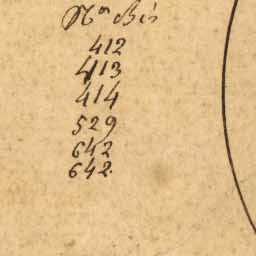 Nos Bis
412
413
414
529
642
642.